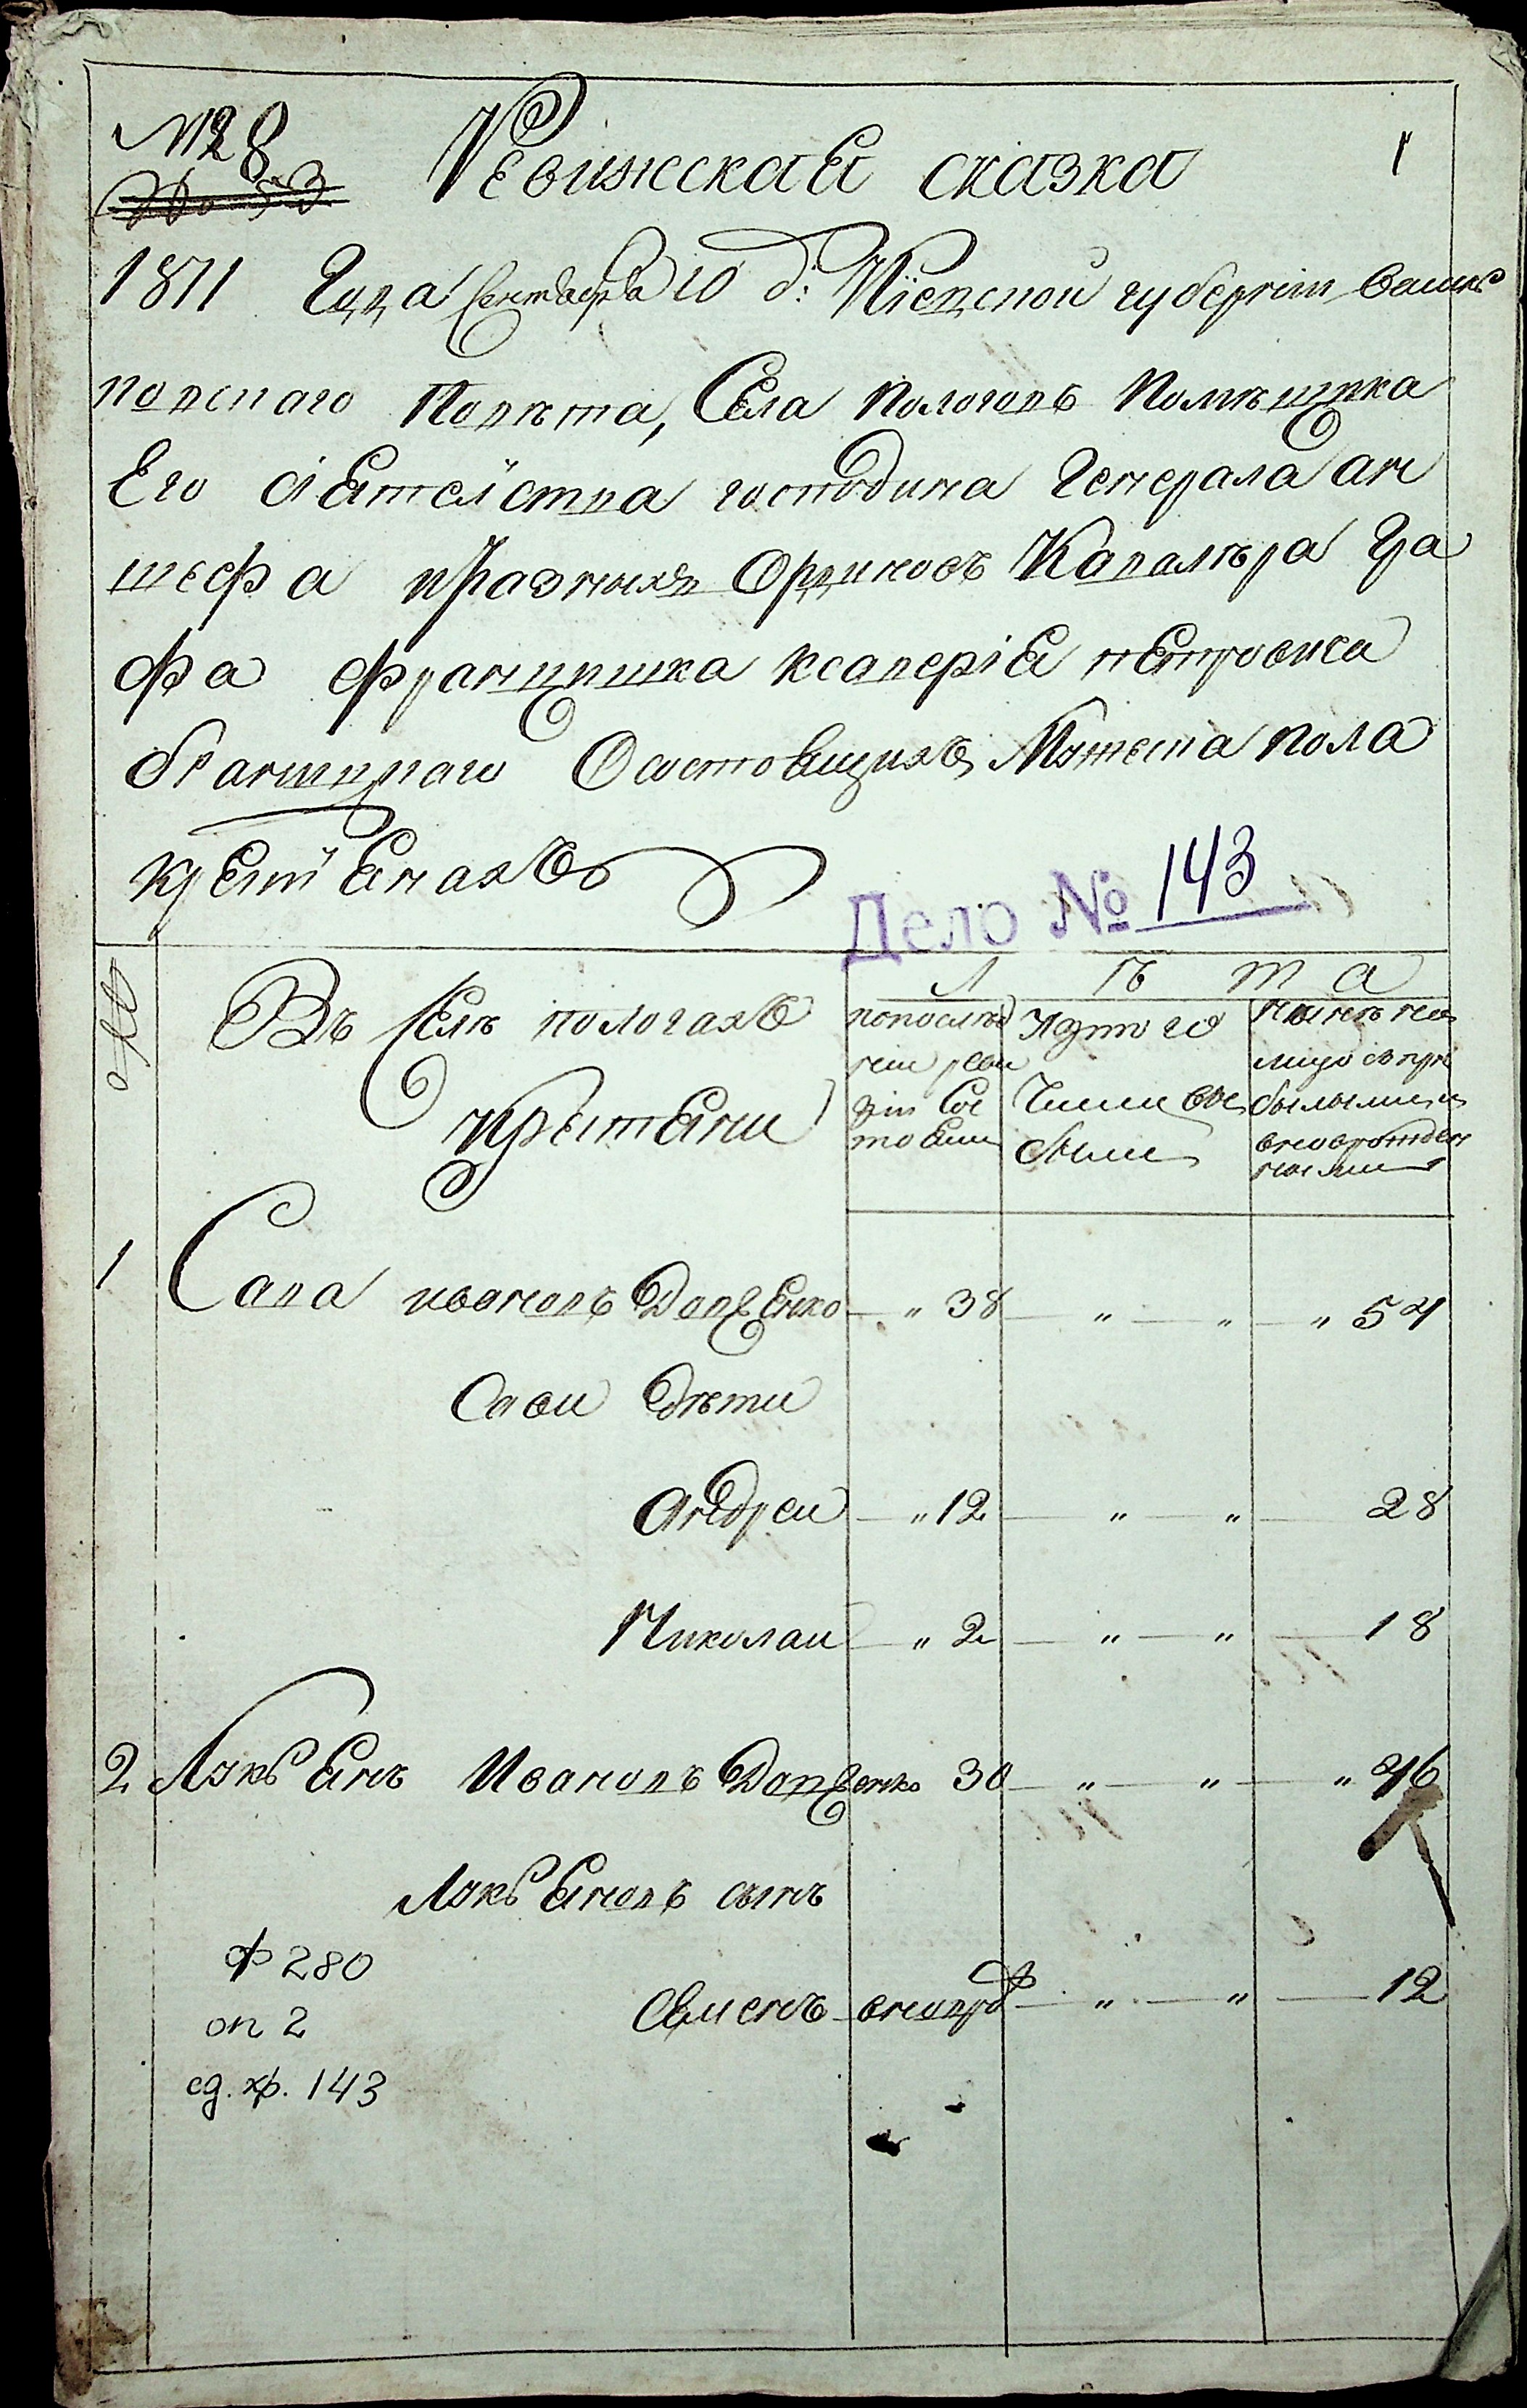 № 28
1
Ревижская сказка
1811 Года Сентября 10 д: Кіевской губерніи васил
ковскаго Повѣта, Села Пологовъ Помѣщика
Его сіятелства господина Генерала ан
шефа и разныхъ Ординовъ Кавалѣра Гра
фа францишка ксаверія петровича
браницкаго О состоящихъ Мужеска пола
крестьянахъ
Дело № 143
№
Въ Селѣ пологахъ
крестьяни
Л ѣ т а
попослѣд
ніи реви
зіи Сос
тояли
Изтого
Числа вы
были
Нынѣ на
лицо спри
былыми и
вноврожден
ными
1 Сава ивановъ Давденко " 38 " " " 54
Сави дѣти
Андреи " 12 " " 28
Николаи " 2 " " 18
2 Лукянъ Ивановъ Давденко 30 " " " 46
Лукяновъ сынъ
Семенъ вновро " " 12
ф 280
оп 2
ед. хр. 143